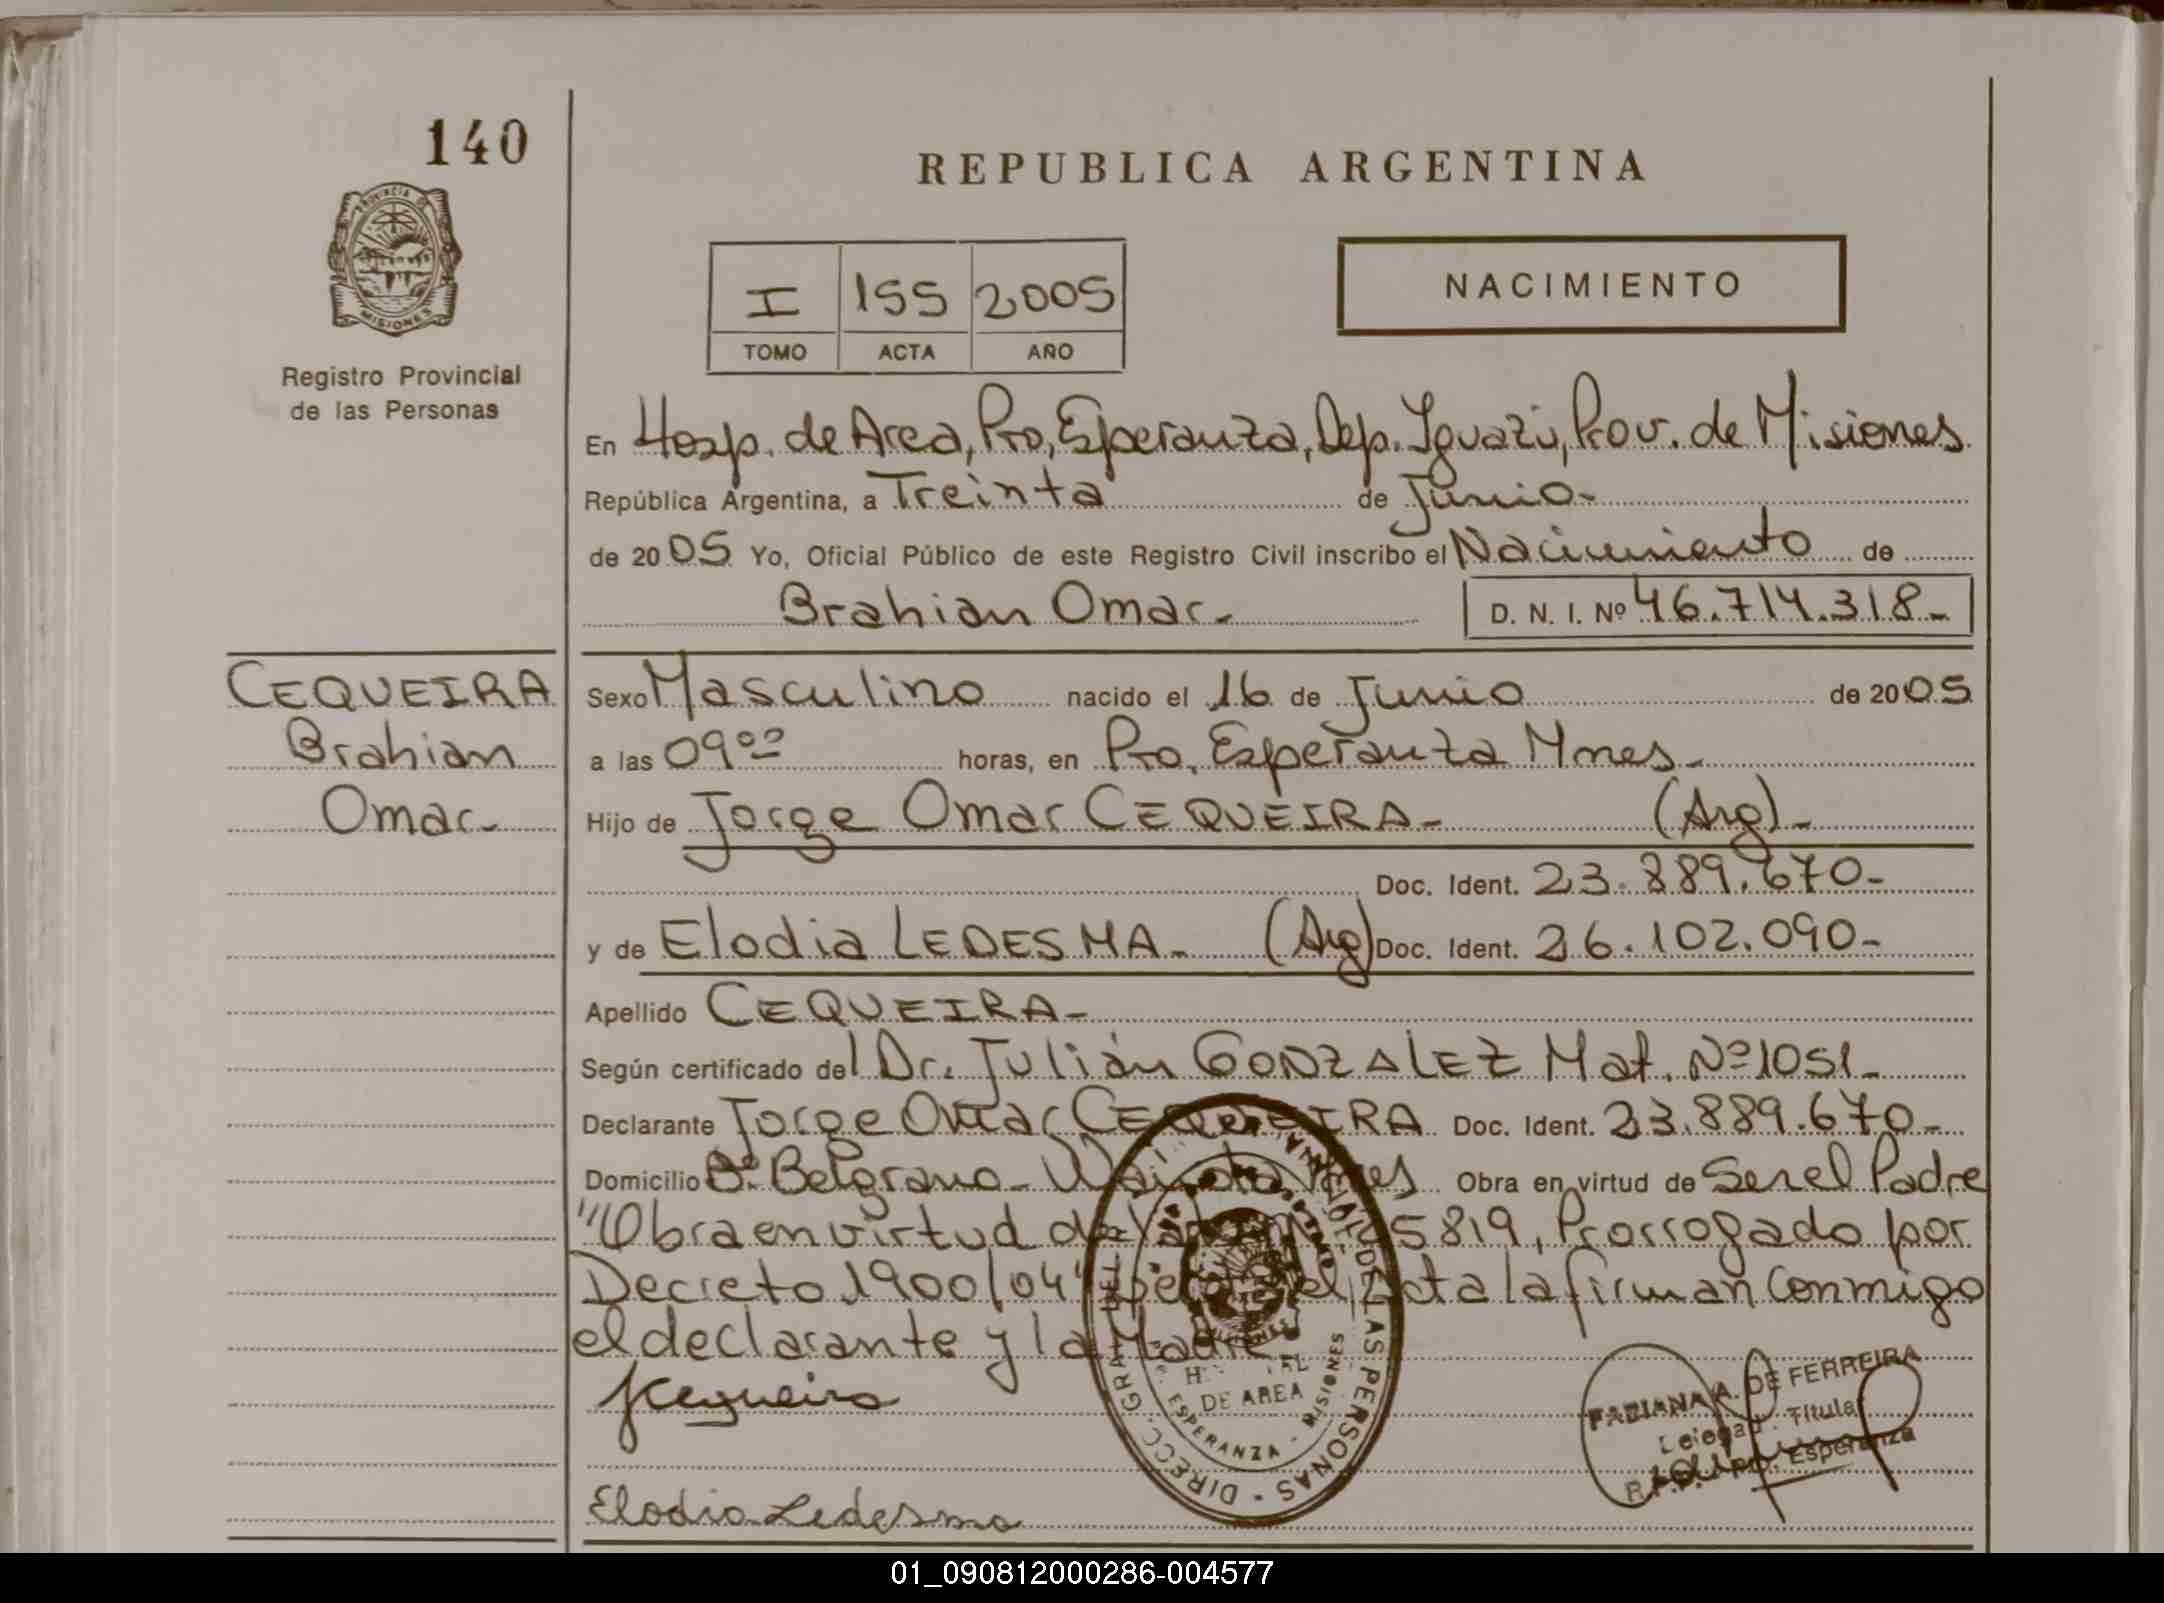 140
REPUBLICA ARGENTINA
PROVINCIA DE
MISIONES
Registro Provincial
de las Personas
I 155 2005
TOMO ACTA AÑO
NACIMIENTO
En Hosp. de Area, Pto, Esperanza, Dep. Iguazú, Prov. de Misiones
República Argentina, a Treinta de Junio-
de 2005 Yo, Oficial Público de este Registro Civil inscribo el Nacimiento de
Brahian Omar- D. N. I. Nº 46.714.318-
CEQUEIRA
Brahian
Omar-
Sexo Masculino nacido el 16 de Junio de 2005
a las 09ºº horas, en Pto. Esperanza Mnes-
Hijo de Jorge Omar CEQUEIRA- (Arg)-
Doc. Ident. 23.889.670-
y de Elodia LEDESMA- (Arg) Doc. Ident. 26.102.090-
Apellido CEQUEIRA-
Según certificado del Dr. Julián GONZALEZ Mat. Nº 1051-
Declarante Jorge Omar CEQUEIRA Doc. Ident. 23.889.670-
Domicilio Bº Belgrano- Wanda Mnes Obra en virtud de Ser el Padre
"Obra en virtud de 25819, Prorrogado por
Decreto 1900/04" el Acta la firman conmigo
el declarante y la Madre
JCequeira
Elodia Ledesma
DIRECC. GRAL. DEL DE LAS PERSONAS
HOSPITAL
DE AREA
ESPERANZA - MISIONES
FABIANA A. DE FERREIRA
Delegada Titular
R.P.P. Pto. Esperanza
01_090812000286-004577